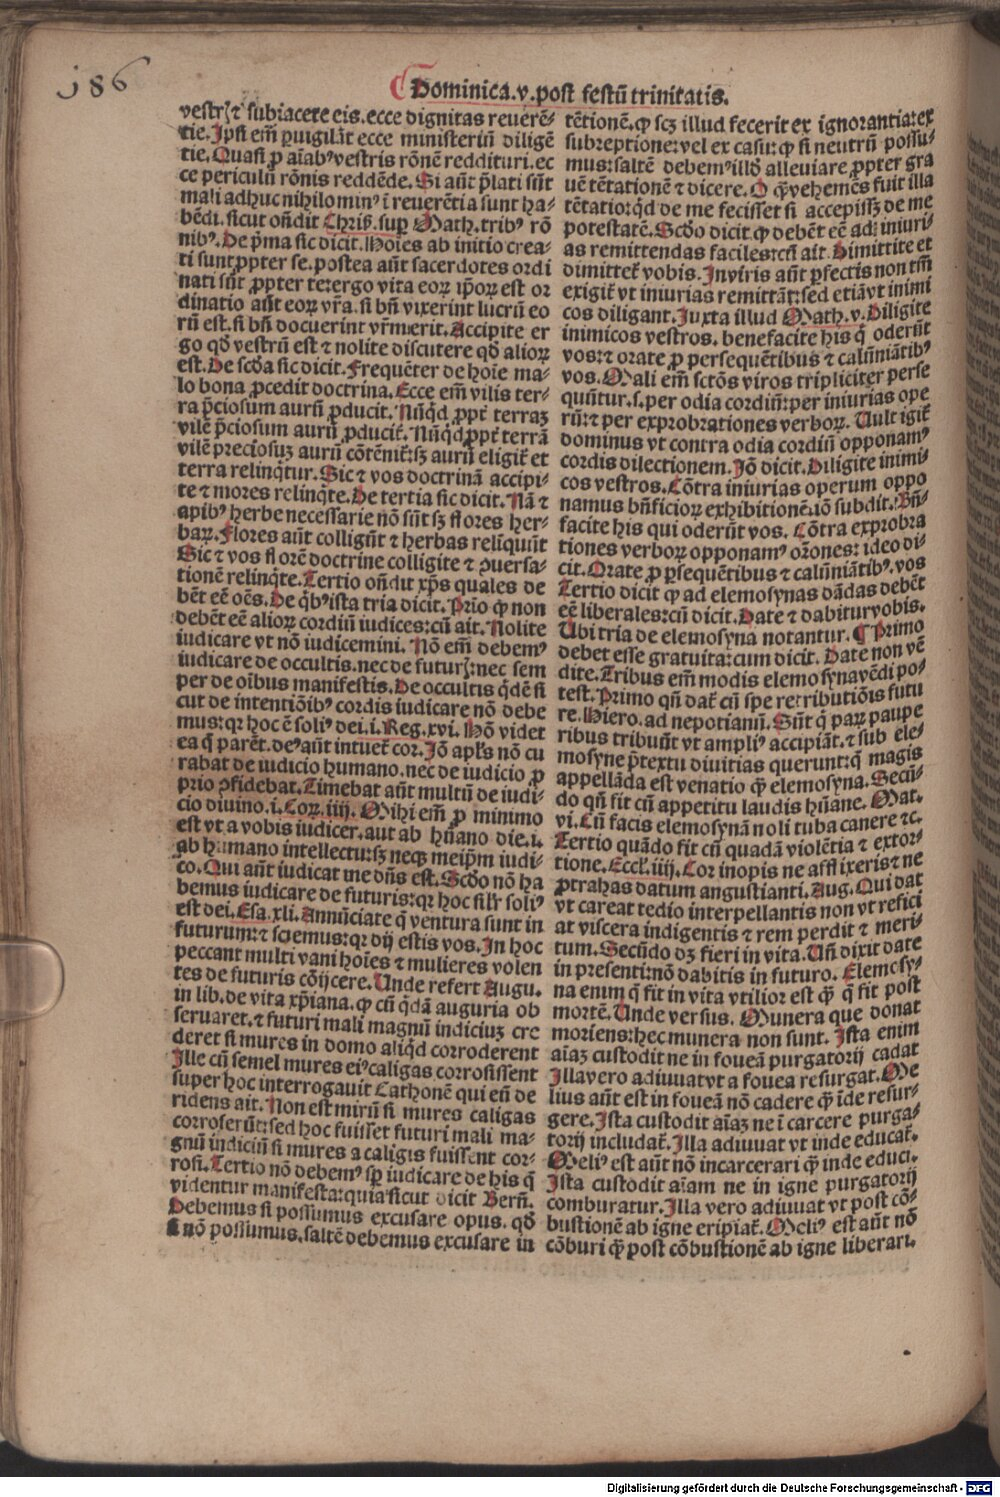 186
Dominica.v.post festū trinitatis.
vestrꝭ ⁊ subiacete eis.ecce dignitas reuerē-
tie.Ipsi em̄ ꝑuigilāt ecce ministeriū diligē
tie.Quasi ꝓ aīabꝰ vestris rōnē reddituri.ec
ce periculū rōnis reddēde.Si aūt p̄lati sūt
mali adhuc nihilominꝰ ī reuerētia sunt ha-
bēdi.sicut oñdit Chris̄.suꝑ Math.tribꝰ rō
nibꝰ.De p̄ma sic dicit.Hoīes ab initio crea-
ti sunt ꝓpter se.postea aūt sacerdotes ordi
nati sūt ꝓpter te:ergo vita eoꝝ ip̄oꝝ est or
dinatio aūt eoꝝ vr̄a.si bn̄ vixerint lucrū eo
rū est.si bn̄ docuerint vr̄m erit.Accipite er
go qd̄ vestrū est ⁊ nolite discutere qd̄ alioꝝ
est.De scd̄a sic dicit.Frequēter de hoīe ma-
lo bona ꝓcedit doctrina.Ecce em̄ vilis ter-
ra p̄ciosum aurū ꝓducit.Nūqd̄ ꝓpt̄ terraꝫ
vilē p̄ciosum aurū ꝓducit̄.Nūqd̄ ꝓpt̄ terrā
vilē preciosuꝫ aurū cōtēnit̄:sꝫ aurū eligit̄ et
terra relinqͥtur.Sic ⁊ vos doctrinā accipi-
te ⁊ mores relinqͥte.De tertia sic dicit.Nā ⁊
apibꝰ herbe necessarie nō sūt sꝫ flores her-
baꝝ.Flores aūt colligūt ⁊ herbas reliquūt
Sic ⁊ vos florē doctrine colligite ⁊ ꝯuersa-
tionē relinqͥte.Tertio oñdit xp̄s quales de
bēt eē oēs.De qͥbꝰ ista tria dicit.Prīo ꝙ non
debēt eē alioꝝ cordiū iudices:cū ait.Nolite
iudicare vt nō iudicemini. Nō em̄ debemꝰ
iudicare de occultis.nec de futurꝭ:nec sem
per de oībus manifestis.De occultis qͥdē si
cut de intentiōibꝰ cordis iudicare nō debe
mus:qꝛ hoc ē soliꝰ dei.i.Reg.xvi. Hō videt
ea q̄ parēt.deꝰ aūt intuet̄ cor.Iō apl̄s nō cu
rabat de iudicio humano.nec de iudicio ꝓ
prio ꝯfidebat.Timebat aūt multū de iudi-
cio diuino.i.Coꝝ.iiij. Mihi em̄ ꝓ minimo
est vt a vobis iudicer.aut ab hūano die.i.
ab humano intellectu:sꝫ neqꝫ meip̄m iudi-
co.Qui aūt iudicat me dn̄s est.Scd̄o nō ha
bemus iudicare de futuris:qꝛ hoc sil̄r soliꝰ
est dei.Esa.xli.Annūciate q̄ ventura sunt in
futurum:⁊ sciemus:qꝛ dij estis vos.In hoc
peccant multi vani hoīes ⁊ mulieres volen
tes de futuris cōijcere.Unde refert Augu.
in lib.de vita xp̄iana.ꝙ cū qͥdā auguria ob
seruaret.⁊ futuri mali magnū indiciuꝫ cre
deret si mures in domo aliqͥd corroderent
Ille cū semel mures eiꝰ caligas corrosissent
super hoc interrogauit Cathonē qui eū de
ridens ait. Non est mirū si mures caligas
corroserūt:sed hoc fuisset futuri mali ma-
gnū indiciū si mures a caligis fuissent cor-
rosi.Tertio nō debemꝰ sꝑ iudicare de his q̄
videntur manifesta:quia sicut dicit Bern̄.
Debemus si possumus excusare opus. qd̄
si nō possumus.saltē debemus excusare in
tētionē.ꝙ scꝫ illud fecerit ex ignorantia:ex
subreptione:vel ex casu:ꝙ si neutrū possu-
mus:saltē debemꝰ illd̄ alleuiare ꝓpter gra
uē tētationē ⁊ dicere. O q̄ȝ vehemēs fuit illa
tētatio:qͥd de me fecisset si accepissꝫ de me
potestatē.Scd̄o dicit ꝙ debēt eē ad iniuri-
as remittendas faciles:cū ait. Dimittite et
dimittet̄ vobis.In viris aūt ꝑfectis non tm̄
exigit̄ vt iniurias remittāt:sed etiā vt inimi
cos diligant.Iuxta illud Math.v.Diligite
inimicos vestros. benefacite his qͥ oderūt
vos:⁊ orate ꝓ persequētibus ⁊ calūniātibꝰ
vos.Mali em̄ sctōs viros tripliciter perse
quūtur.s.per odia cordiū:per iniurias ope
rū:⁊ per exprobrationes verboꝝ. Uult igit̄
dominus vt contra odia cordiū opponamꝰ
cordis dilectionem. Iō dicit. Diligite inimi-
cos vestros.Cōtra iniurias operum oppo
namus bn̄ficioꝝ exhibitionē.iō subdit. Bn̄-
facite his qui oderūt vos. Cōtra exprobra
tiones verboꝝ opponamꝰ or̄ones: ideo di-
cit.Orate ꝓ ꝑsequētibus ⁊ calūniātibꝰ.vos
Tertio dicit ꝙ ad elemosynas dādas debēt
eē liberales:cū dicit. Date ⁊ dabitur vobis.
Ubi tria de elemosyna notantur. ¶ Primo
debet esse gratuita:cum dicit. Date non vē
dite. Tribus em̄ modis elemosyna vēdi po-
test. Primo qn̄ dat̄ cū spe retributiōis futu
re.Hiero.ad nepotianū. Sūt qͥ paꝝ paupe
ribus tribuūt vt ampliꝰ accipiāt.⁊ sub ele-
mosyne p̄textu diuitias querunt:q̄ magis
appellāda est venatio q̄ȝ elemosyna. Secū-
do qn̄ fit cū appetitu laudis hūane. Mat.
vi. Cū facis elemosynā noli tuba canere ⁊c.
Tertio quādo fit cū quadā violētia ⁊ extor-
tione. Eccl̄.iiij. Cor inopis ne afflixeris:⁊ ne
ꝓtrahas datum angustianti. Aug. Qui dat
vt careat tedio interpellantis non vt refici
at viscera indigentis ⁊ rem perdit ⁊ meri-
tum. Secūdo dꝫ fieri in vita. Un̄ dixit date
in presenti:nō dabitis in futuro. Elemosy-
na enim q̄ fit in vita vtilior est q̄ȝ q̄ fit post
mortē. Unde versus. Munera que donat
moriens:hec munera non sunt. Ista enim
aīaꝫ custodit ne in foueā purgatorij cadat
Illa vero adiuuat vt a fouea resurgat. Me
lius aūt est in foueā nō cadere q̄ȝ īde resur-
gere.Ista custodit aīaꝫ ne ī carcere purga-
torij includat̄. Illa adiuuat vt inde educat̄.
Meliꝰ est aūt nō incarcerari q̄ȝ inde educi.
Ista custodit aīam ne in igne purgatorij
comburatur. Illa vero adiuuat vt post cō-
bustionē ab igne eripiat̄. Meliꝰ est aūt nō
cōburi q̄ȝ post cōbustionē ab igne liberari.
Digitalisierung gefördert durch die Deutsche Forschungsgemeinschaft - DFG